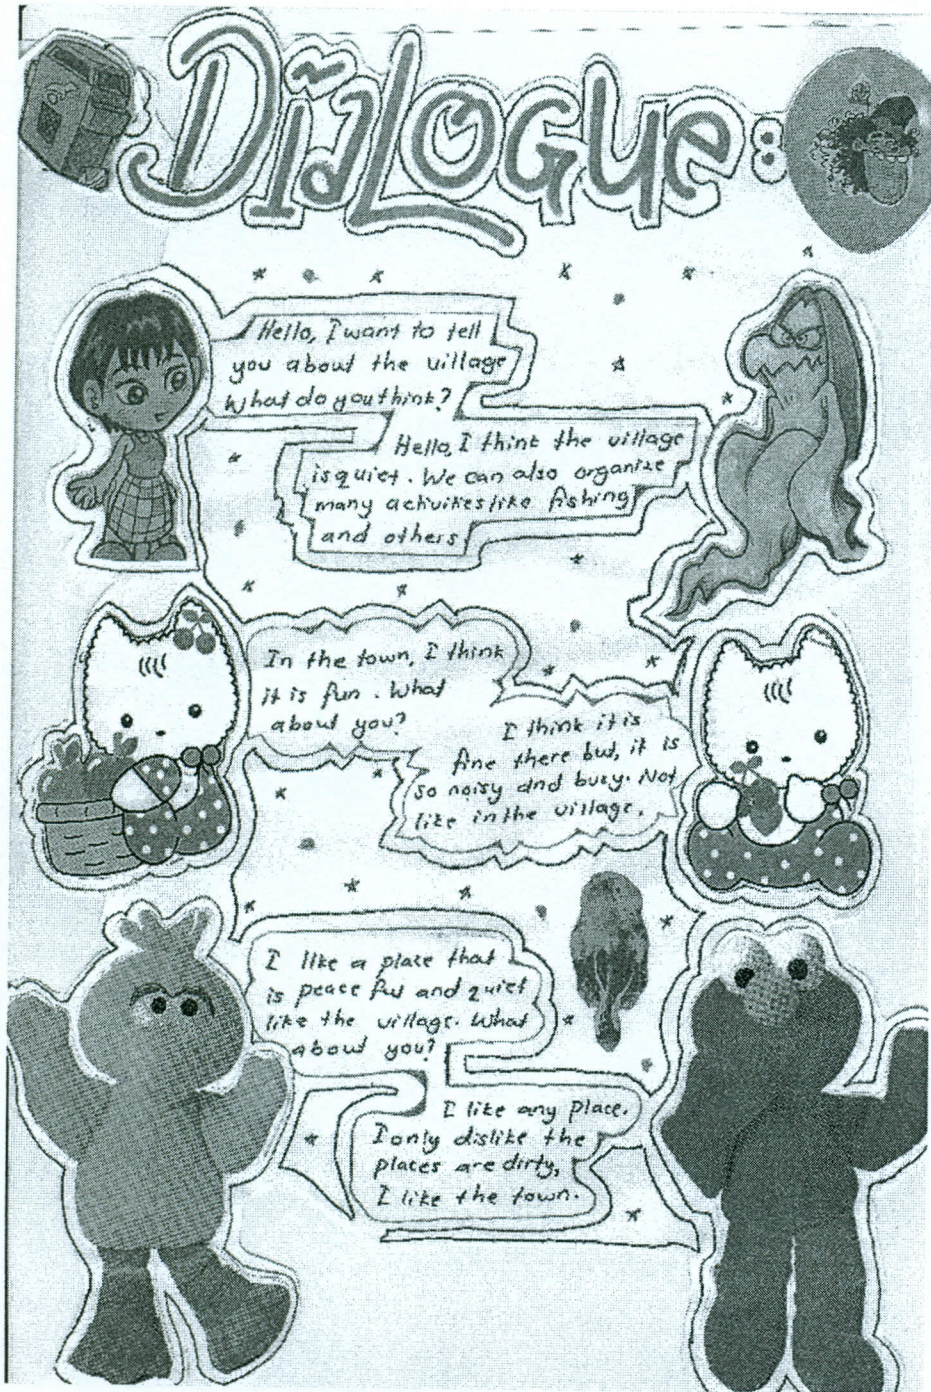 Dialogue:
Hello, I want to tell
you about the village
What do you think?
Hello, I think the village
is quiet. We can also organize
many activities like fishing
and others
In the town, I think
it is fun. What
about you?
I think it is
fine there but, it is
so noisy and busy. Not
like in the village.
I like a place that
is peace ful and quiet
like the village. What
about you?
I like any place.
I only dislike the
places are dirty,
I like the town.